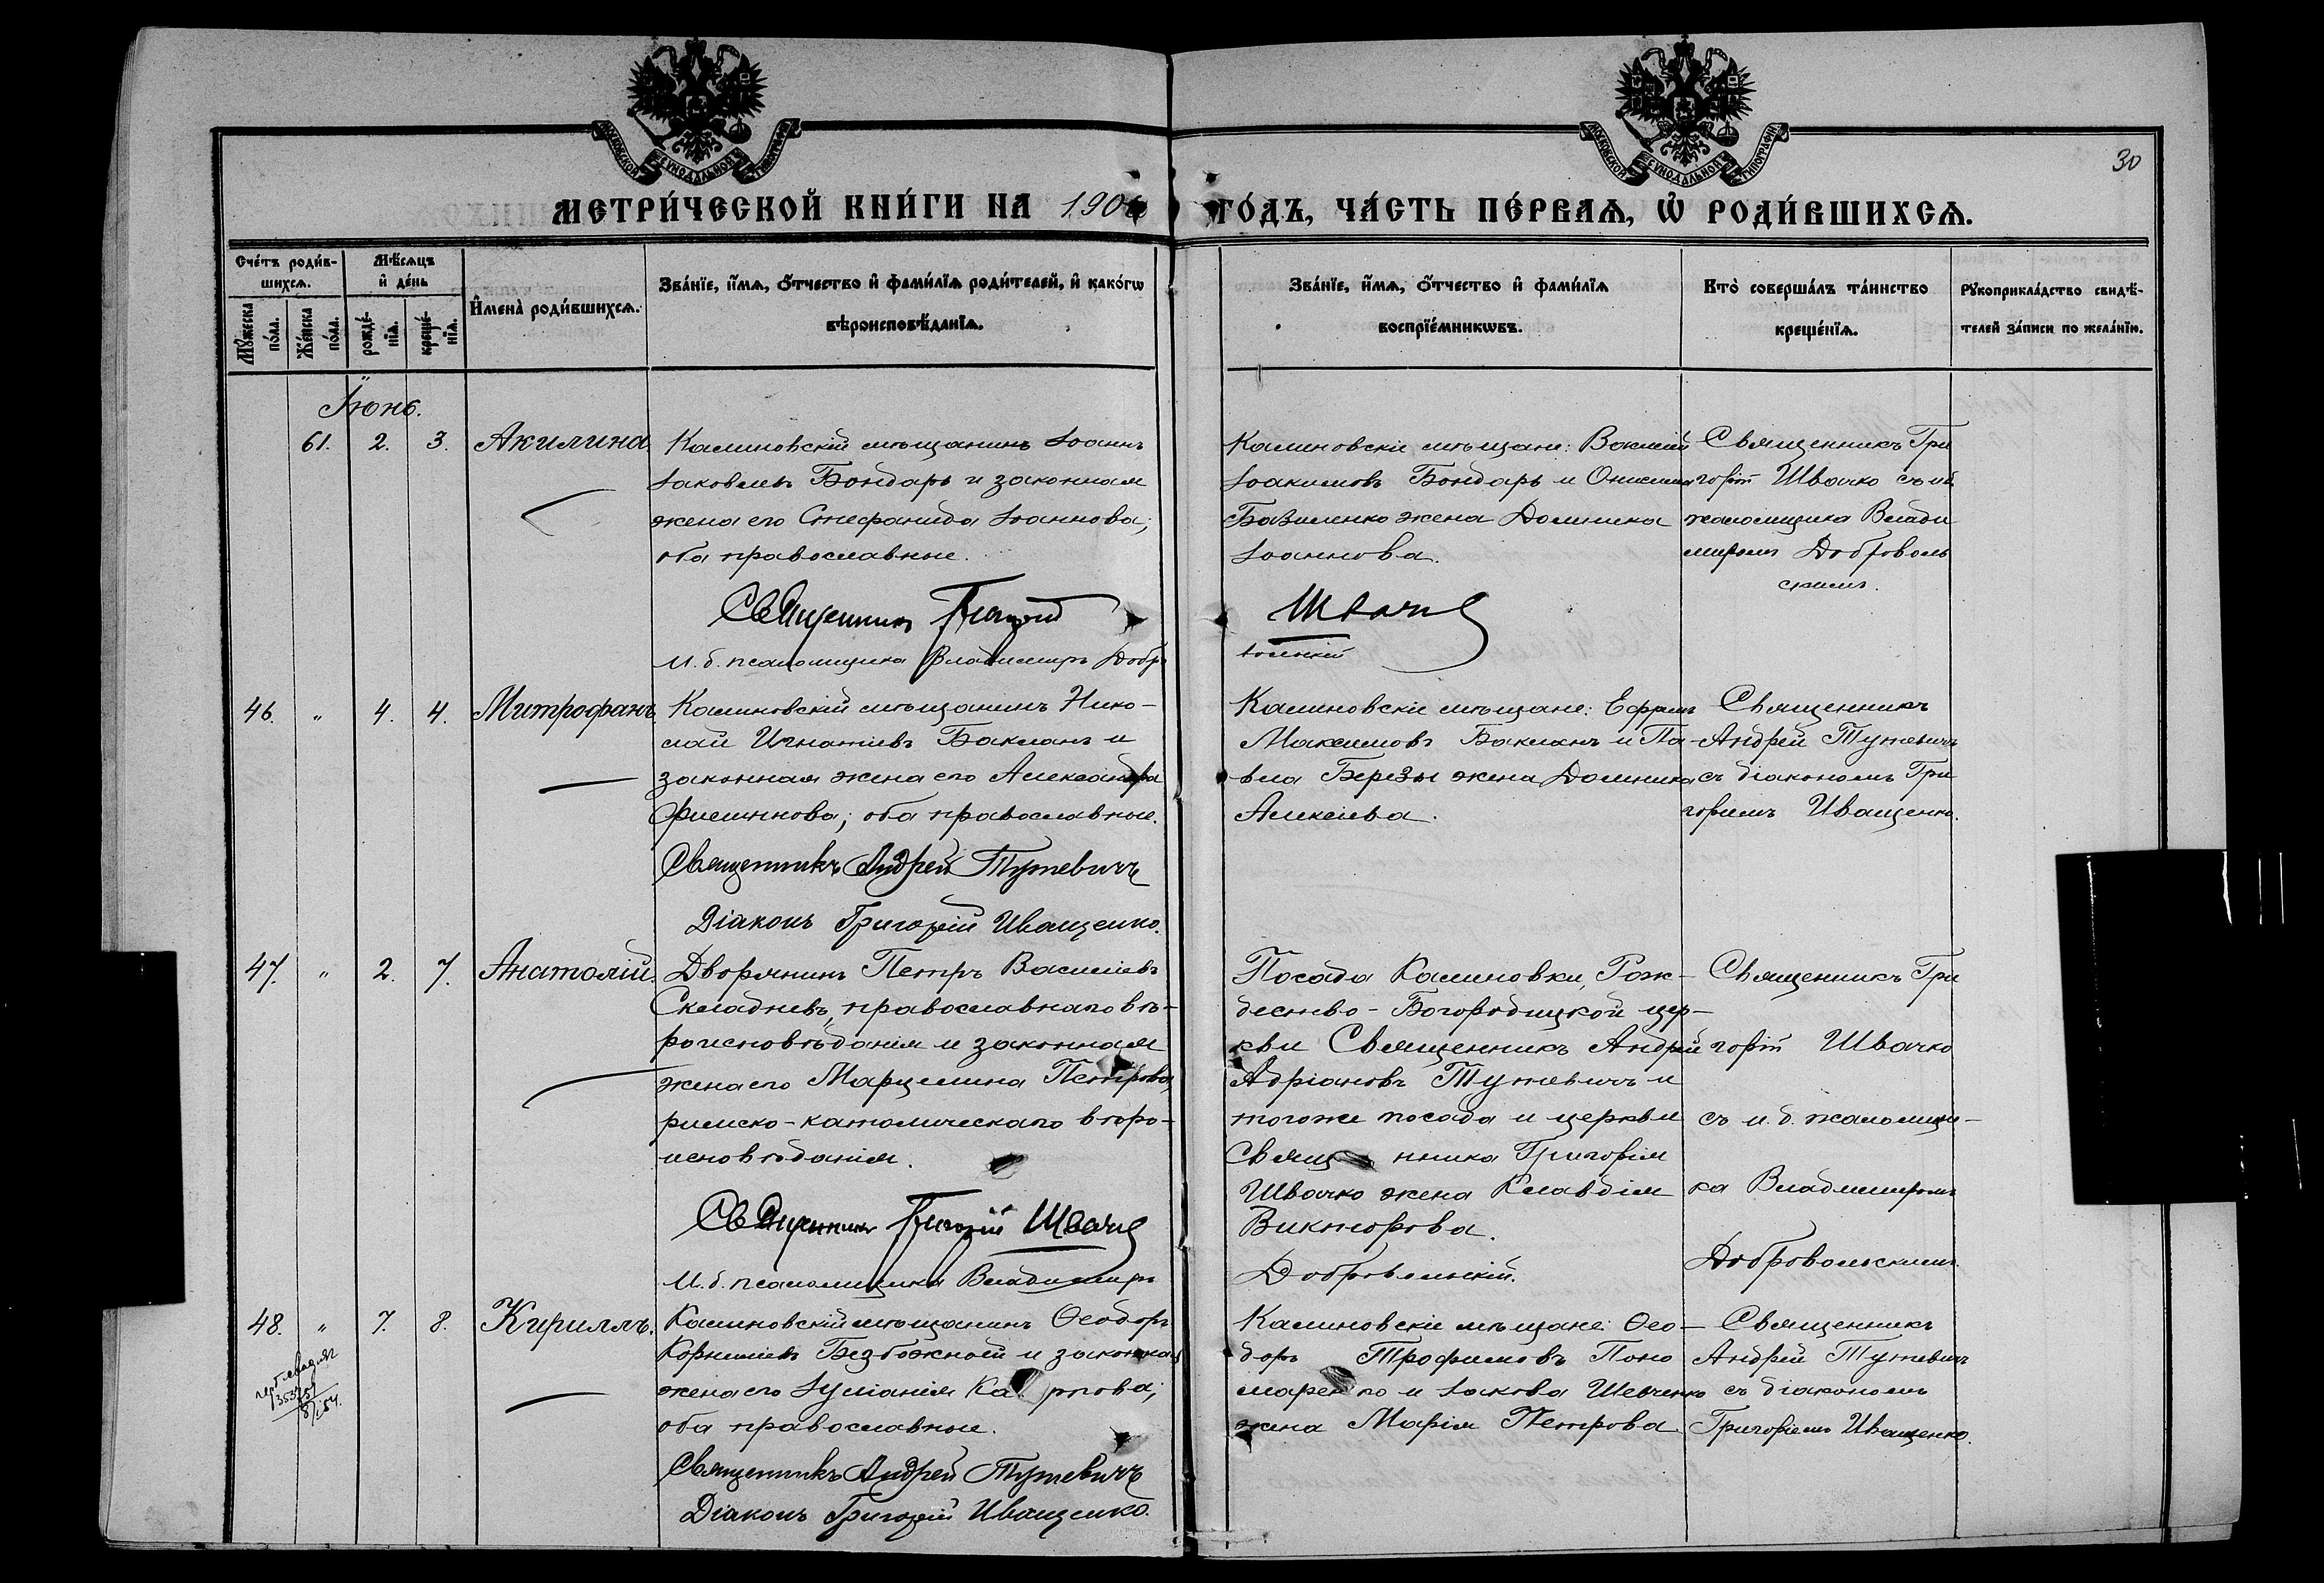 МОСКОВСКОЙ СѴНОДАЛЬНОЙ ТИПОГРАФІИ
МОСКОВСКОЙ СѴНОДАЛЬНОЙ ТИПОГРАФІИ
30
МЕТРИ́ЧЕСКОЙ КНИ́ГИ НА 190
ГО́ДЪ, ЧА́СТЬ ПЕ́РВАѦ, Ѡ҆ РОДИ́ВШИХСѦ.
Сче́тъ роди́в-
шихсѧ.
Мꙋ́жеска по́ла.
Же́нска по́ла.
Мѣ́сѧцъ
и҆ де́нь
рожде́-
нїѧ.
креще́-
нїѧ.
И҆мена̀ роди́вшихсѧ.
Зва́нїе, и҆́мѧ, о҆́тчество и҆ фами́лїѧ роди́телей, и҆ како́гѡ
вѣроисповѣ́данїѧ.
Зва́нїе, и҆́мѧ, о҆́тчество и҆ фами́лїѧ
воспрїе́мникѡвъ.
Кто̀ соверша́лъ та́инство
креще́нїѧ.
Рꙋкоприкла́дство свидѣ́-
телей за́писи по жела́нїю.
Іюнь.
61. 2. 3. Акилина.
Калиновскій мѣщанинъ Іоаннъ
Іаковлевъ Бондарь и законная
жена его Стефанида Іоаннова;
оба православные.
Священникъ Григорій
И. д. псаломщика Владимиръ Добро
Калиновскіе мѣщане: Василій
Іоакимовъ Бондарь и Онисима
Базиленко жена Домника
Іоаннова.
Швачко
вольскій
Священникъ Гри
горій Швачко съ и.д.
псаломщика Влади
миромъ Доброволь
скимъ.
46. " 4. 4. Митрофанъ.
Калиновскій мѣщанинъ Нико-
лай Игнатіевъ Бакланъ и
законная жена его Александра
Филиппова; оба православные.
Священникъ Андрей Тутевичъ
Діаконъ Григорій Иващенко.
Калиновскіе мѣщане: Ефремъ
Максимовъ Бакланъ и Па-
вла Березы жена Домника
Алексіева.
Священникъ
Андрей Тутевичъ
съ діакономъ Гри
горіемъ Иващенко.
47. " 2. 7. Анатолій.
Дворянинъ Петръ Василіевъ
Складневъ, православнаго вѣ-
роисповѣданія и законная
жена его Марцелина Петрова,
римско-католическаго вѣро-
исповѣданія.
Священникъ Григорій Швачко
И. д. псаломщика Владимиръ
Посада Калиновки, Рож-
дество-Богородицкой цер-
кви Священникъ Андрей
Адріановъ Тутевичъ и
тогоже посада и церкви
Священника Григорія
Швачко жена Клавдія
Викторова.
Добровольскій.
Священникъ Гри
горій Швачко
съ и. д. псаломщи-
ка Владимиромъ
Добровольскимъ.
48. " 7. 8. Кириллъ.
8/І 54.
Калиновскій мѣщанинъ Ѳеодоръ
Корниліевъ Безбожный и законная
жена его Іуліанія Карпова;
оба православные.
Священникъ Андрей Тутевичъ
Діаконъ Григорій Иващенко.
Калиновскіе мѣщане: Ѳео-
доръ Трофимовъ Поно
маренко и Іакова Шевченко
жена Марія Петрова.
Священникъ
Андрей Тутевичъ
съ діакономъ
Григоріемъ Иващенко.